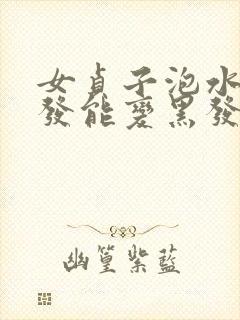 女貞子泡水
發能變黑發
幽篁紫藍